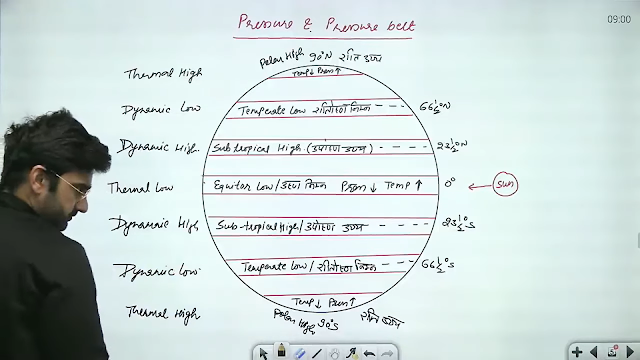 09:00
Pressure & Pressure belt
Polar High 90°N शीत उच्च
Thermal High Temp↓ Press↑
Dynamic Low Temperate Low शीतोष्ण निम्न 66½°N
Dynamic High. Subtropical High. (उपोष्ण उच्च) 23½°N
Thermal Low Equitor Low/उष्ण निम्न Press ↓ Temp ↑ 0° ← Sun
Dynamic High Sub-tropical High/उपोष्ण उच्च 23½°S
Dynamic Low Temperate Low/शीतोष्ण निम्न 66½°S
Thermal High Temp↓ Press↑
Polar High 90°S शीत उच्च